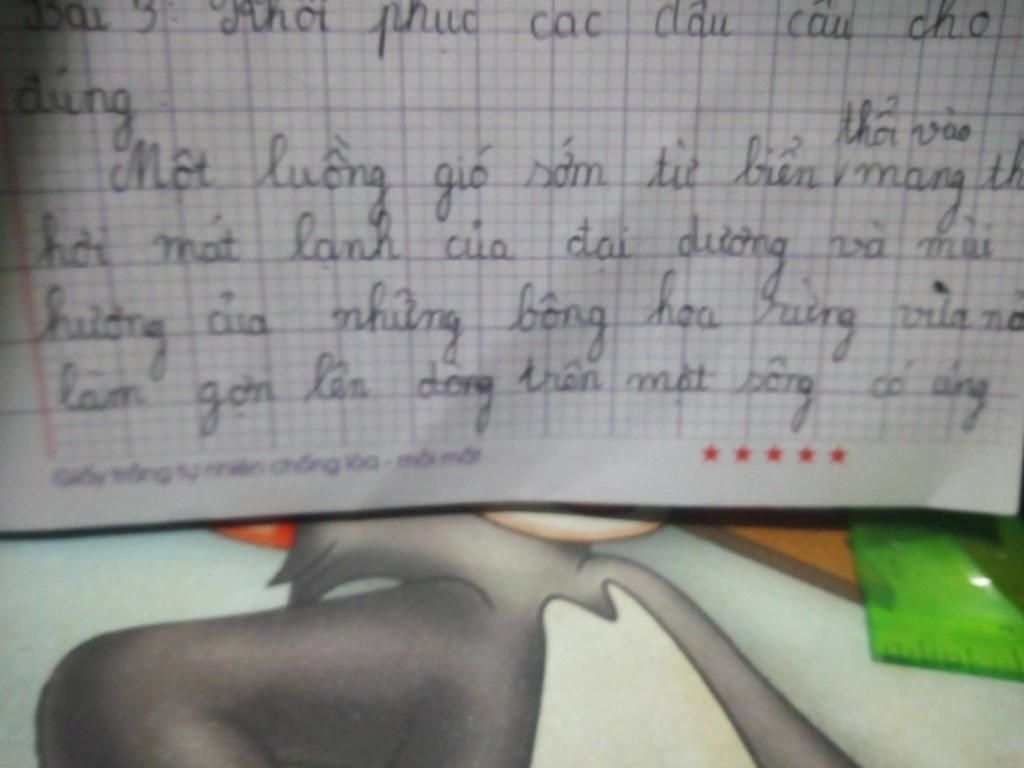 Bài 3: Khôi phục các dấu câu cho
đúng
thổi vào
Một luồng gió sớm từ biển mang th
hơi mát lạnh của đại dương và mùi
hương của những bông hoa rừng vừa nở
làm gợn lên dòng trên mặt sông có áng
Giấy trắng tự nhiên chống lóa - mỏi mắt